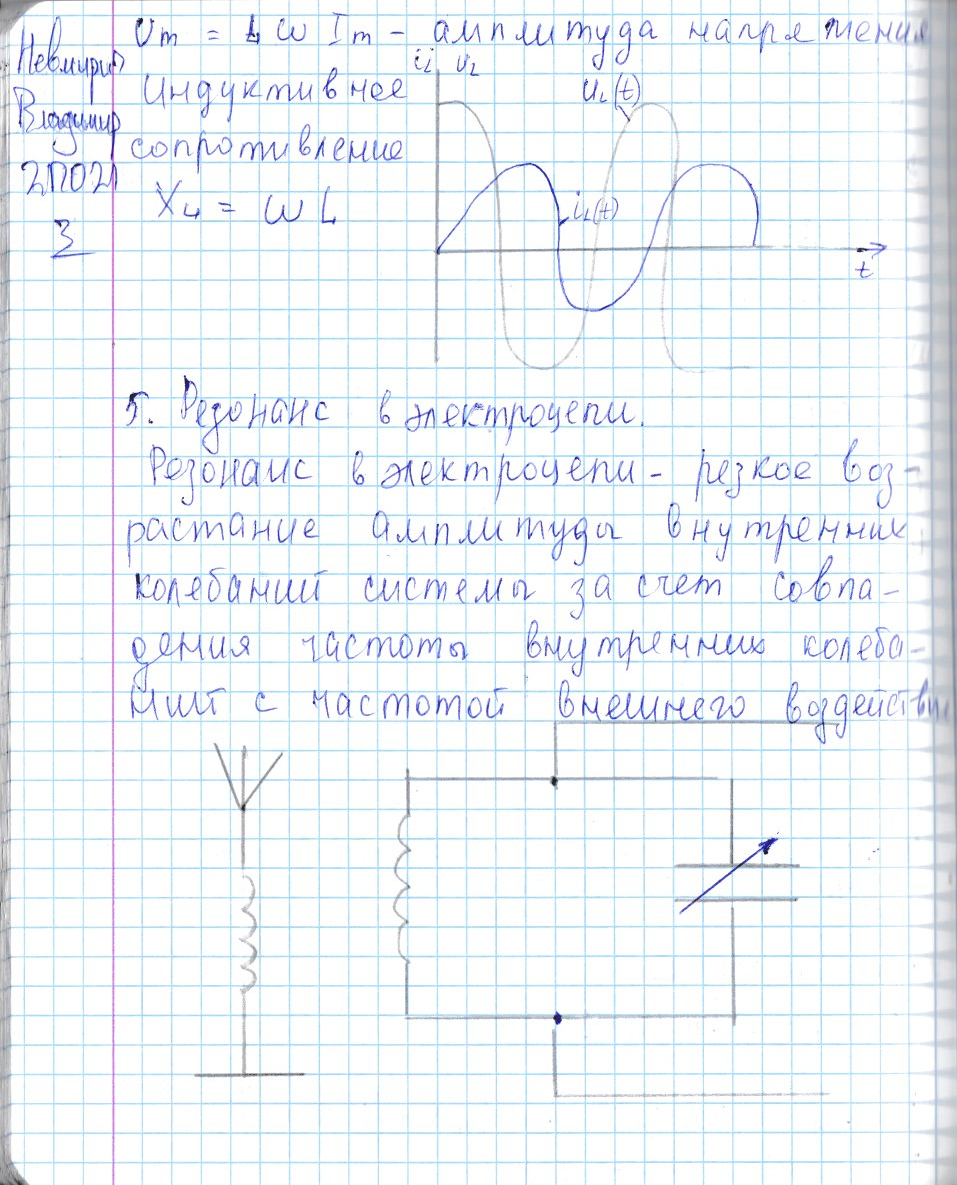 Um = L ω Im – амплитуда напряжения
Невмирич
Владимир
2П021
3
Индуктивное
сопротивление
XL = ωL
iL UL
UL(t)
iL(t)
t
5. Резонанс в электроцепи.
Резонанс в электроцепи – резкое воз-
растание амплитуды внутренних
колебаний системы за счет совпа-
дения частоты внутренних колеба-
ний с частотой внешнего воздействия